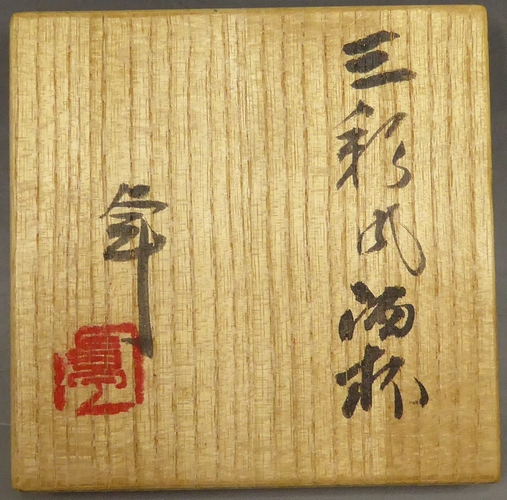 三彩風酒杯
年